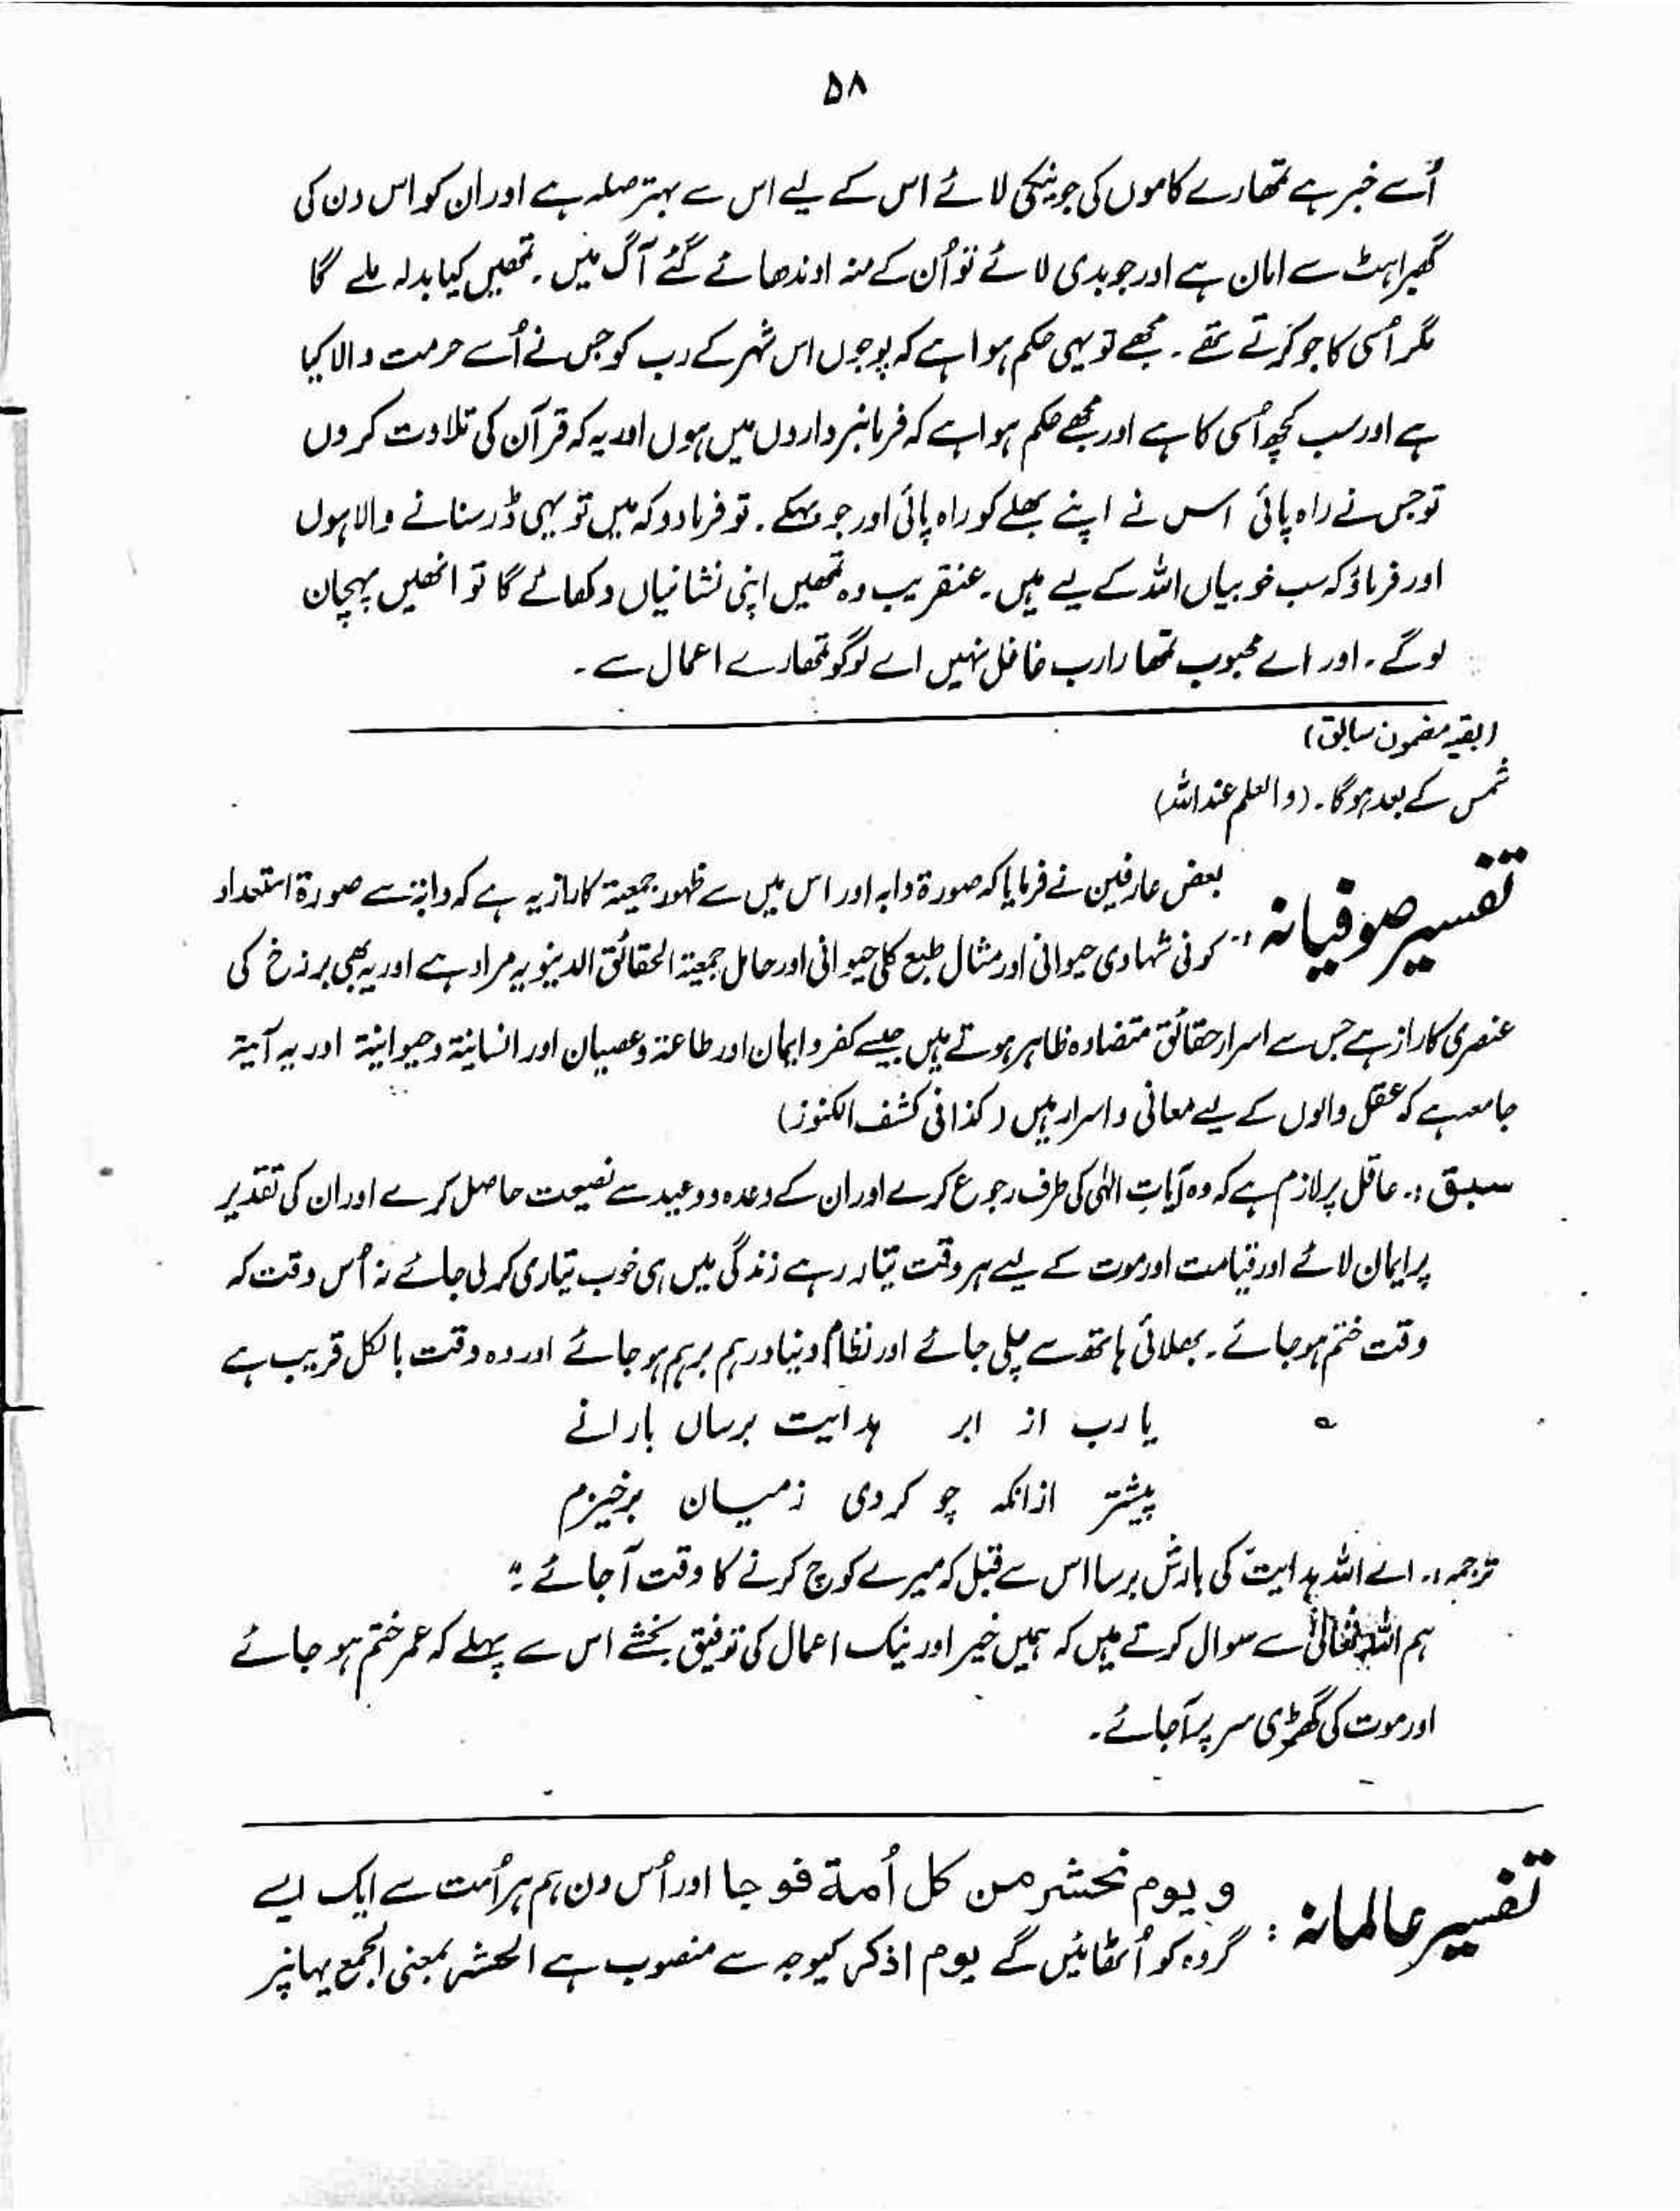 ۵۸
اُسے خبر ہے تمھارے کاموں کی جو نیکی لائے اس کے لیے اس سے بہتر صلہ ہے اور ان کو اس دن کی
گھبراہٹ سے امان ہے اور جو بدی لائے تو اُن کے منہ اوندھائے گئے آگ میں۔ تمھیں کیا بدلہ ملے گا
مگر اُسی کا جو کرتے تھے۔ مجھے تو یہی حکم ہوا ہے کہ پوجوں اس شہر کے رب کو جس نے اُسے حرمت والا کیا
ہے اور سب کچھ اُسی کا ہے اور مجھے حکم ہوا ہے کہ فرمانبرداروں میں ہوں اور یہ کہ قرآن کی تلاوت کروں
تو جس نے راہ پائی اس نے اپنے بھلے کو راہ پائی اور جو بہکے۔ تو فرما دو کہ میں تو یہی ڈر سنانے والا ہوں
اور فرماؤ کہ سب خوبیاں اللہ کے لیے ہیں۔ عنقریب وہ تمھیں اپنی نشانیاں دکھائے گا تو انھیں پہچان
لو گے۔ اور اے محبوب تمھارا رب غافل نہیں اے لوگو تمھارے اعمال سے۔
(بقیہ مضمون سابق)
شمس کے بعد ہوگا۔ (والعلم عند اللہ)
تفسیر صوفیانہ :۔ بعض عارفین نے فرمایا کہ صورۃ دابہ اور اس میں سے ظہور جمعیۃ کا راز یہ ہے کہ دابۃ سے صورۃ استعداد
کونی شہادی حیوانی اور مثال طبع کلی حیوانی اور حامل جمعیۃ الحقائق الدینویہ مراد ہے اور یہ بھی برزخ کی
عنصری کا راز ہے جس سے اسرار حقائق متضادہ ظاہر ہوتے ہیں جیسے کفر و ایمان اور طاعۃ و عصیان اور انسانیۃ و حیوانیۃ اور یہ آیۃ
جامعہ ہے کہ عقل والوں کے لیے معانی و اسرار ہیں (کذا فی کشف الکنوز)
سبق :۔ عاقل پر لازم ہے کہ وہ آیات الٰہی کی طرف رجوع کرے اور ان کے وعدہ و وعید سے نصیحت حاصل کرے اور ان کی تقدیر
پر ایمان لائے اور قیامت اور موت کے لیے ہر وقت تیار رہے زندگی میں ہی خوب تیاری کر لی جائے نہ اُس وقت کہ
وقت ختم ہو جائے۔ بھلائی ہاتھ سے چلی جائے اور نظام دنیا درہم برہم ہو جائے اور وہ وقت بالکل قریب ہے
؎ یا رب از ابر ہدایت برساں بارانے
پیشتر ازانکہ چو گردی زمیسان برخیزم
ترجمہ :۔ اے اللہ ہدایت کی بارش برسا اس سے قبل کہ میرے کوچ کرنے کا وقت آجائے :
ہم اللہ تعالیٰ سے سوال کرتے ہیں کہ ہمیں خیر اور نیک اعمال کی توفیق بخشے اس سے پہلے کہ عمر ختم ہو جائے
اور موت کی گھڑی سر پر آجائے۔
تفسیر عالمانہ : و یوم نحشر من کل اُمة فوجا اور اُس دن ہم ہر اُمت سے ایک ایسے
گروہ کو اُٹھائیں گے یوم اذکر کیوجہ سے منصوب ہے الحشر بمعنی الجمع یہانپر